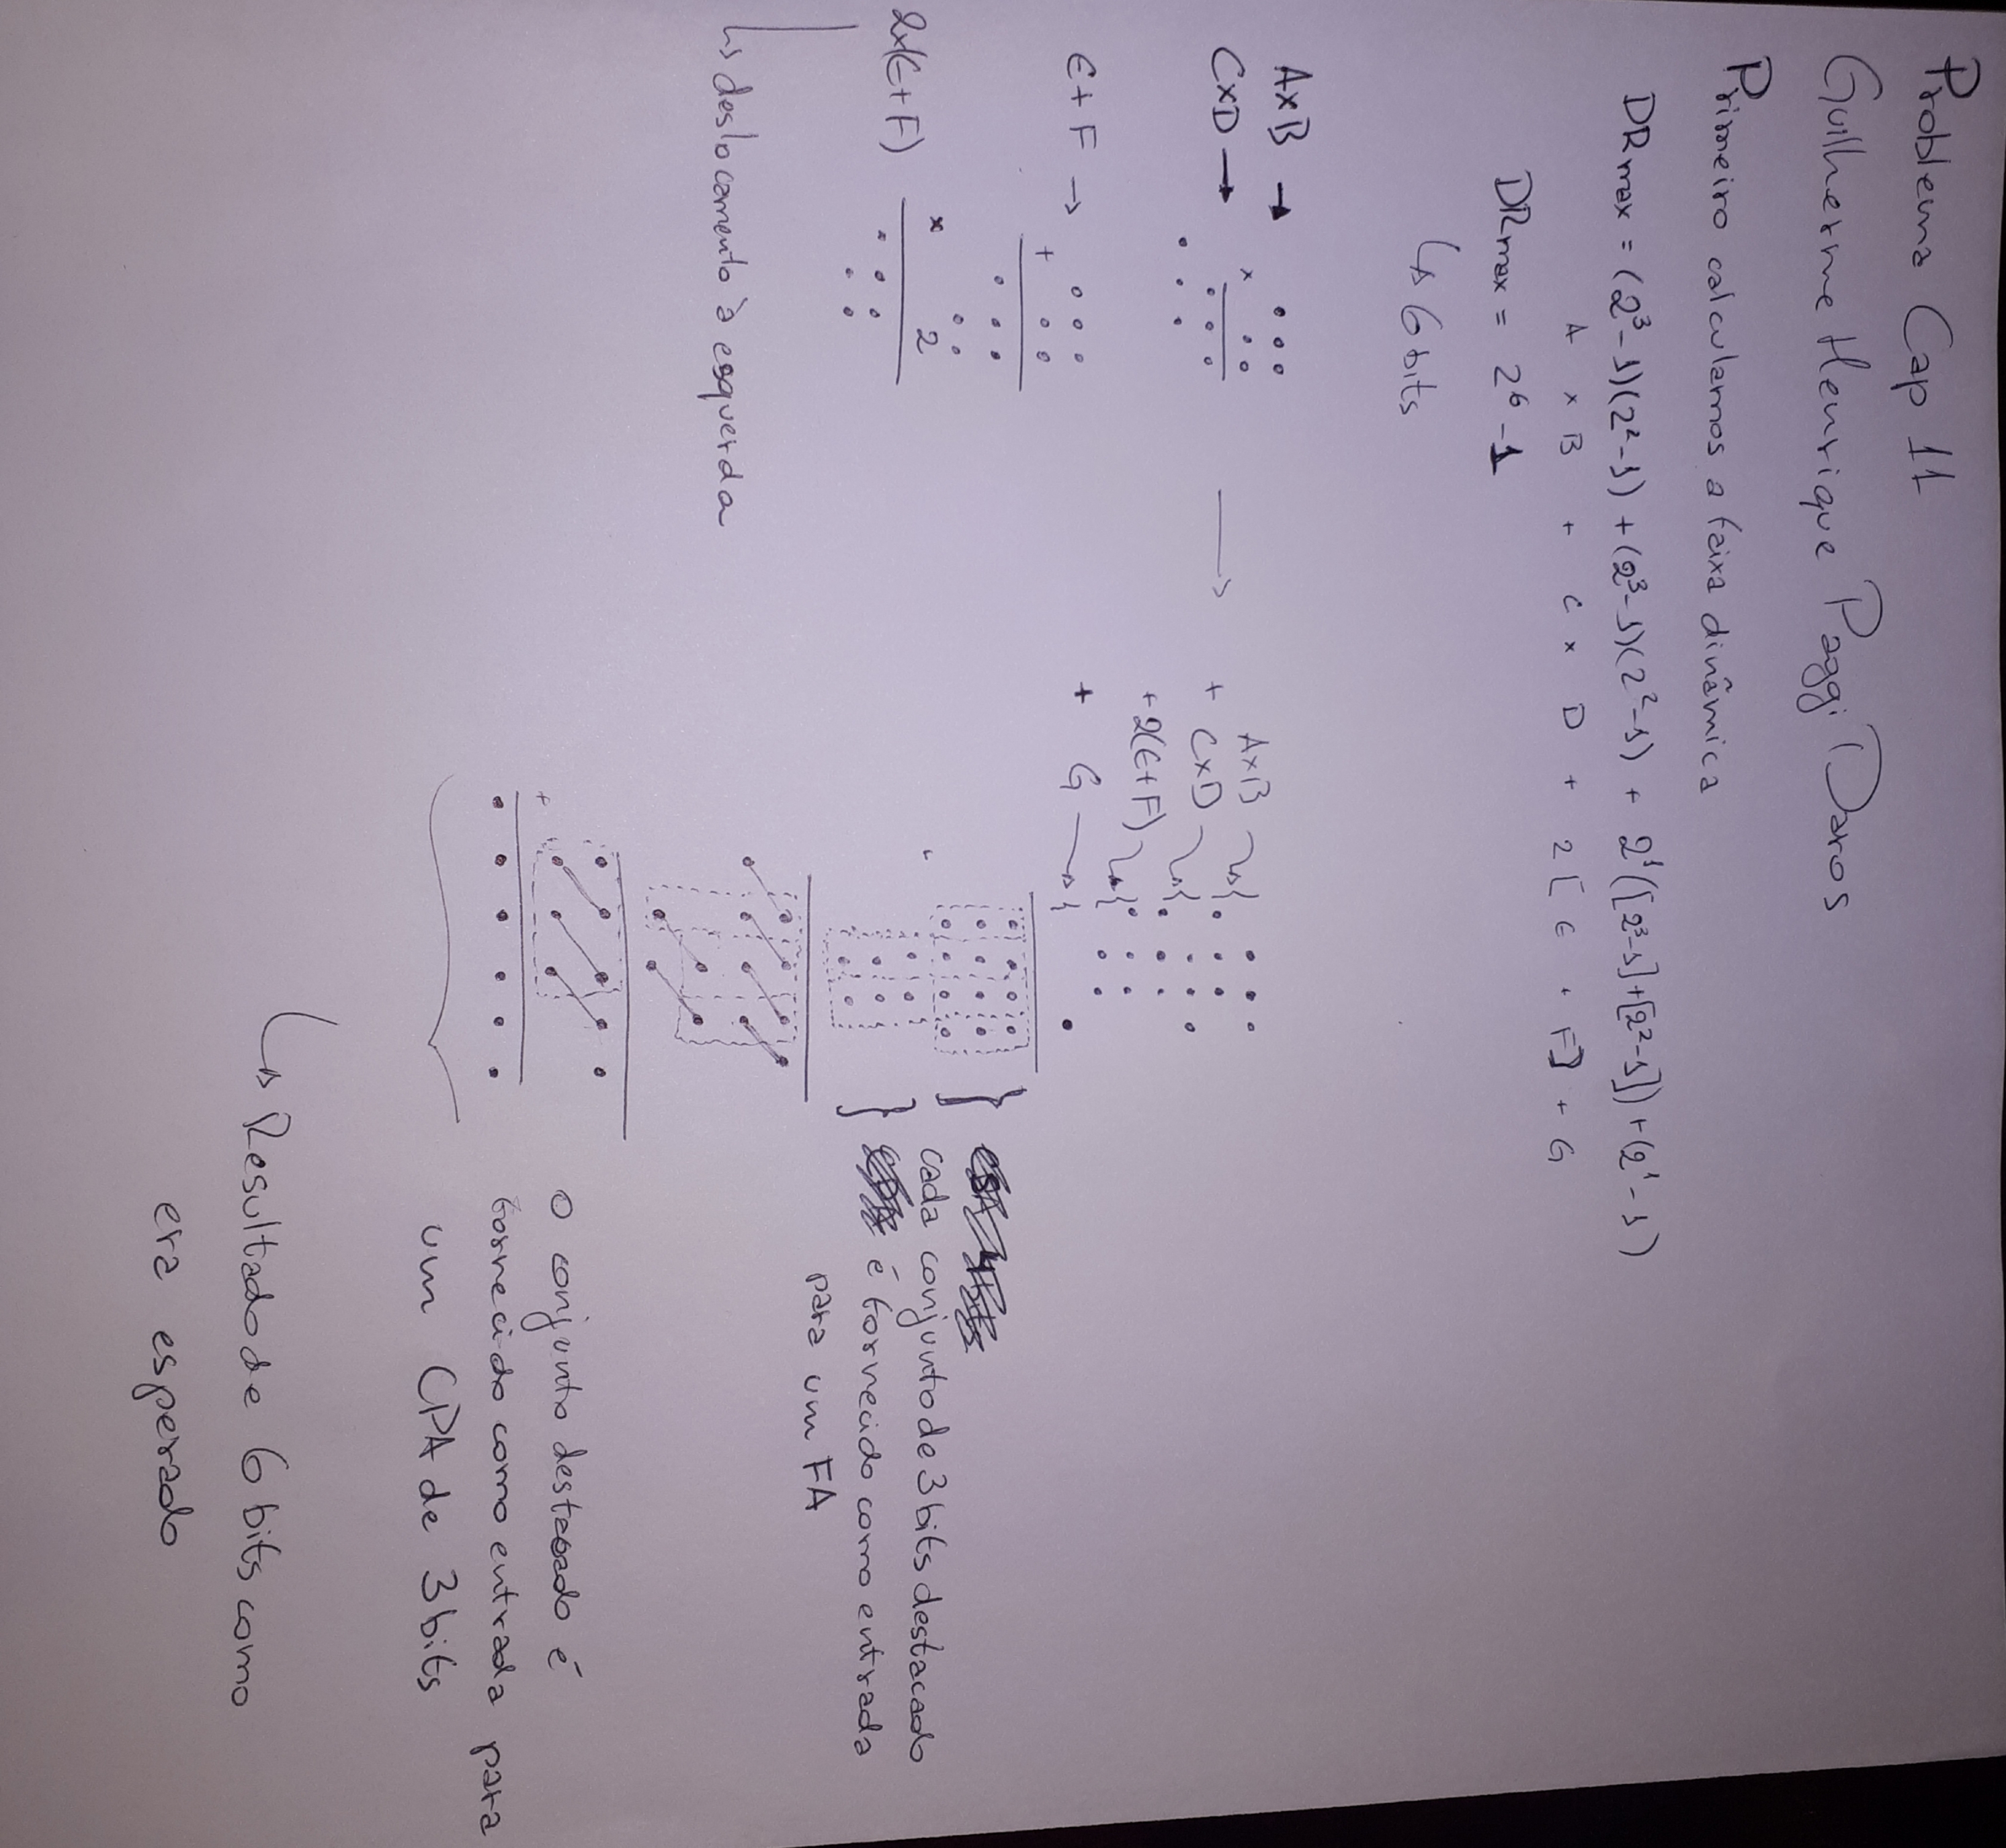 Problema Cap 11
Guilherme Henrique Paggi Daros
Primeiro calculamos a faixa dinâmica
DRmax = (2³-1)(2²-1) + (2³-1)(2²-1) + 2¹([2³-1]+[2²-1])+(2¹-1)
A x B + C x D + 2[E + F] + G
DRmax = 2⁶-1
↳ 6 bits
AxB →
CxD →
x
E+F →
+
2x(E+F)
x 2
↳ deslocamento à esquerda
→
AxB
+ CxD
+ 2(E+F)
+ G
cada conjunto de 3 bits destacado
é fornecido como entrada
para um FA
+
o conjunto destacado é
fornecido como entrada para
um CPA de 3 bits
↳ Resultado de 6 bits como
era esperado